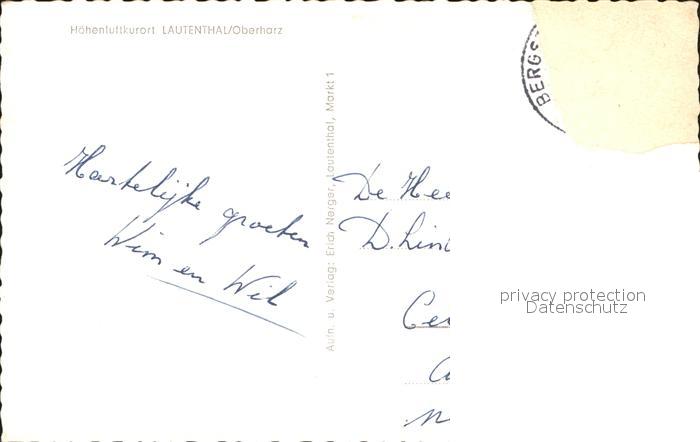 Höhenluftkurort LAUTENTHAL/Oberharz
BERGS
Hartelijke groeten
Wim en Wil
Aufn. u. Verlag: Erich Nerger, Lautenthal, Markt 1
De Hee
D. Lin
Ce
privacy protection
Datenschutz